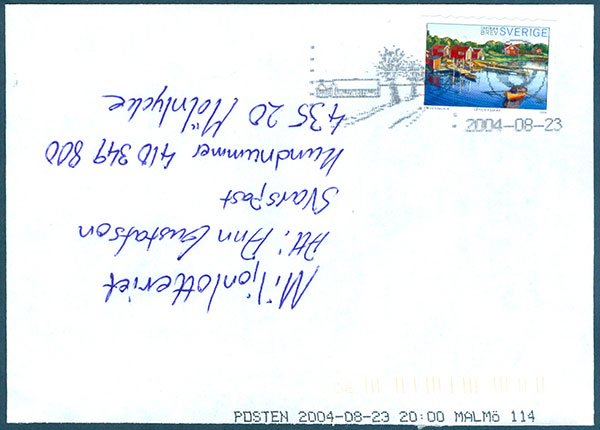 INRIKES
BREV
SVERIGE
2004-08-23
Miljonlotteriet
Att: Ann Gustafson
Svarspost
Kundnummer 410 349 800
435 20 Mölnlycke
POSTEN 2004-08-23 20:00 MALMö 114